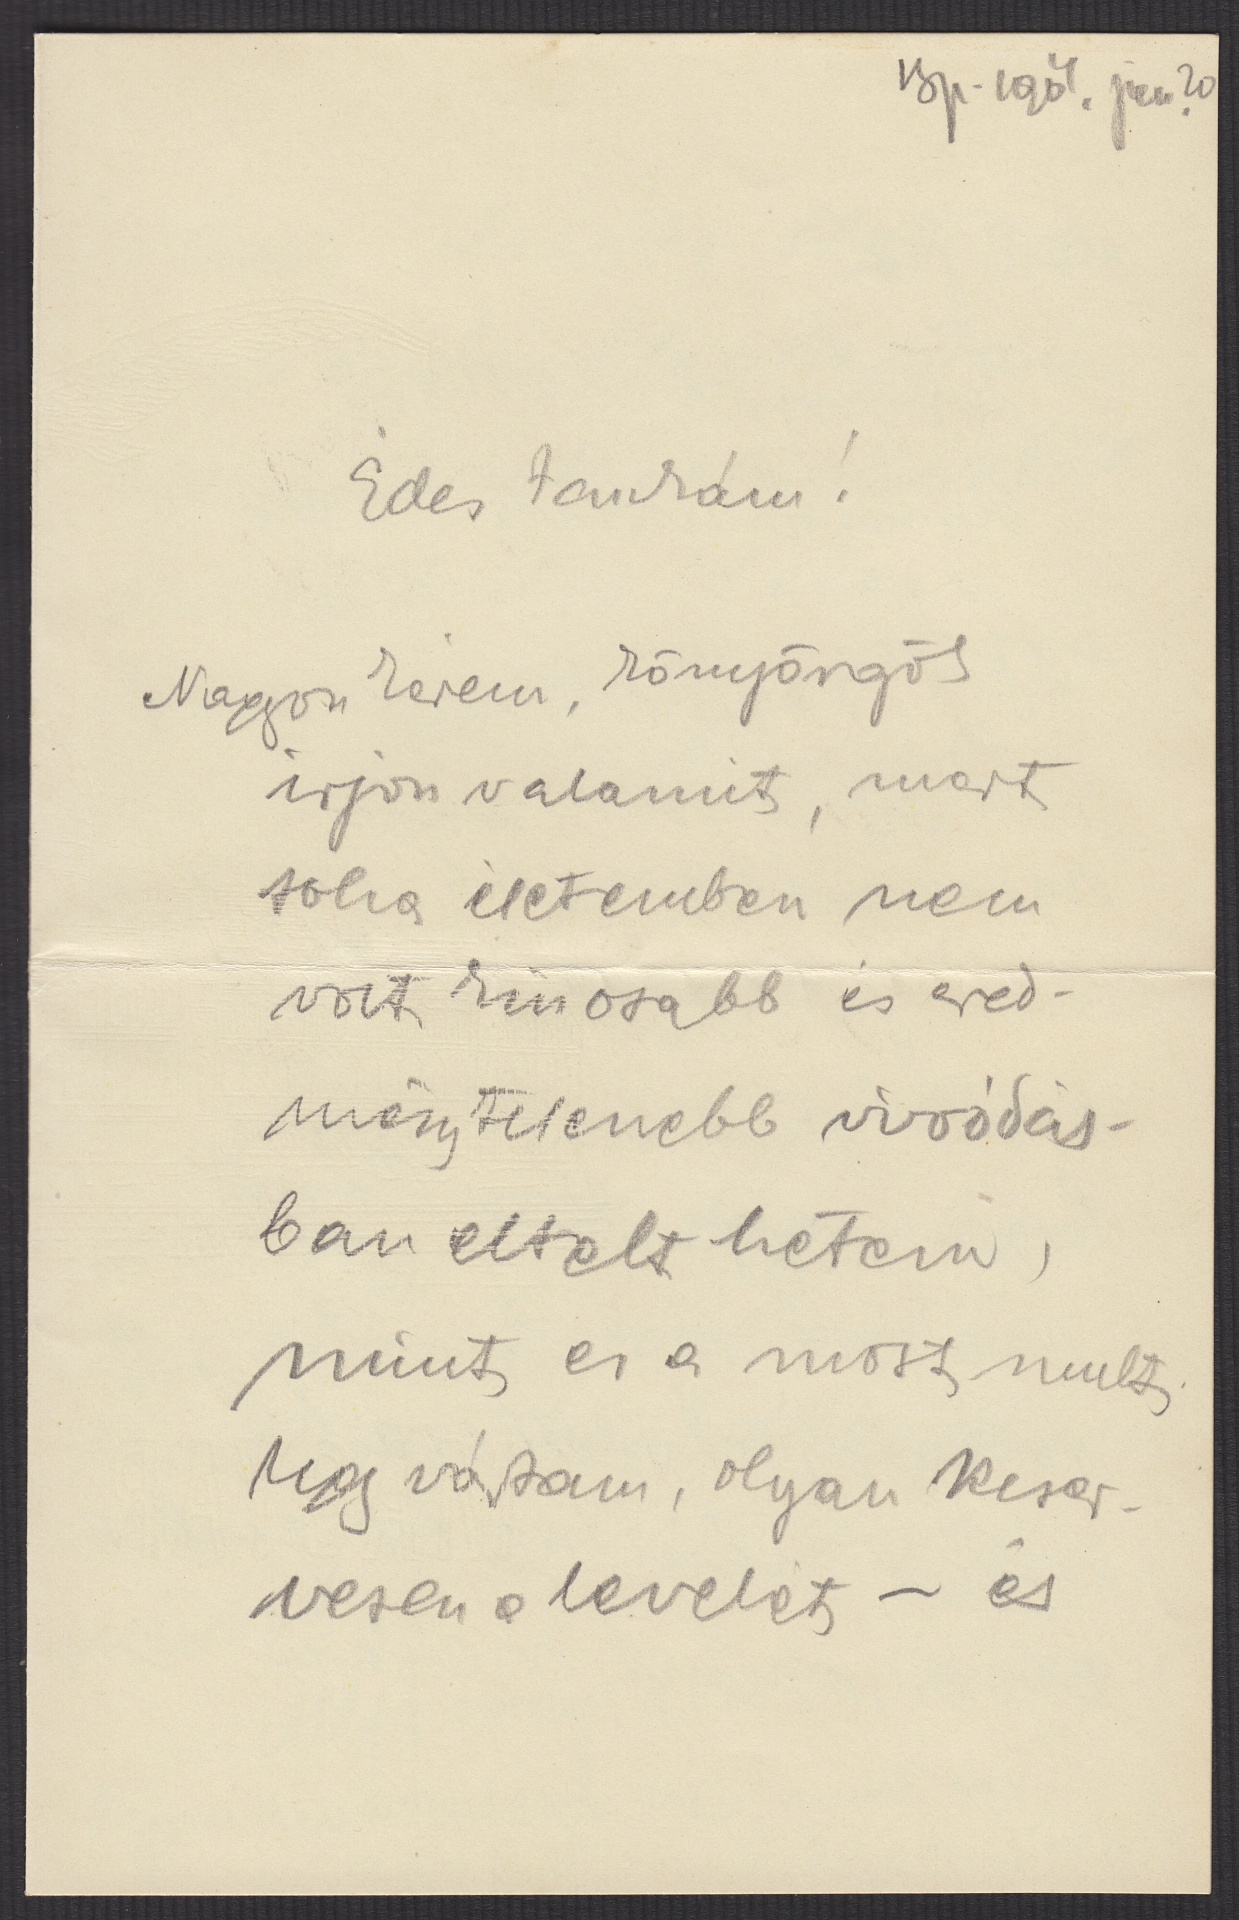 Bp. jan 20
Édes tanárom!
Nagyon kérem, könyörgök
irjon valamit, mert
soha életemben nem
volt kinosabb és ered-
ménytelenebb vivódás-
ban eltelt hetem,
mint ez a most mult.
Ugy vártam, olyan keser-
vesen a levelét – és